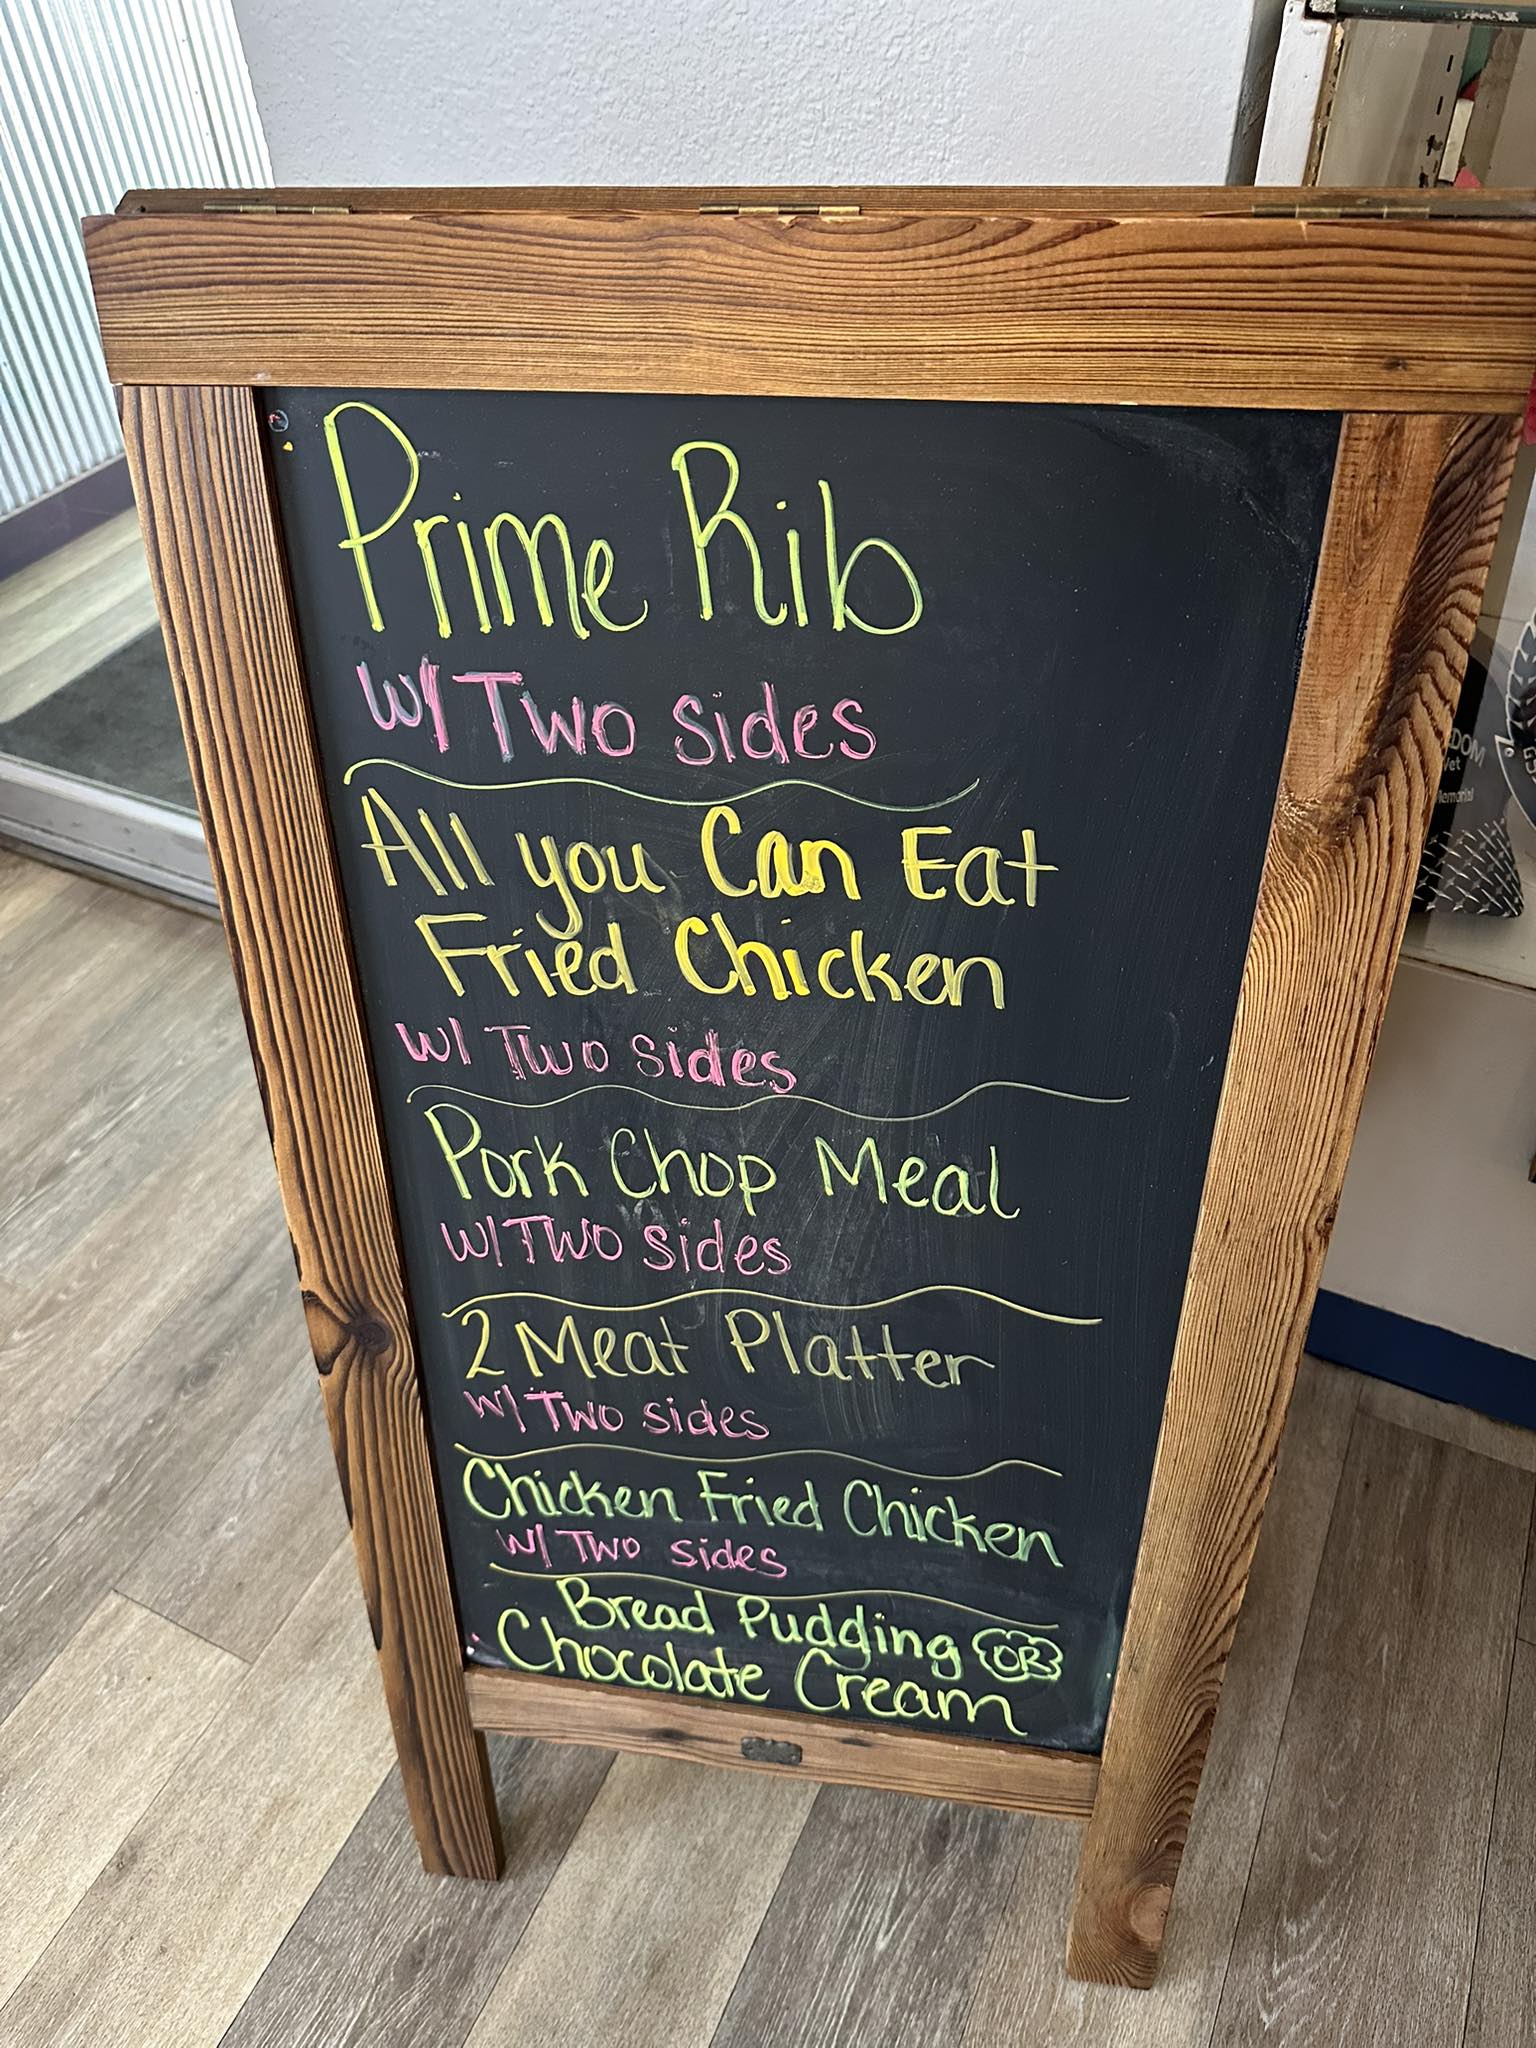 Prime Rib
w/ Two sides
All you Can Eat
Fried Chicken
w/ Two sides
Pork Chop Meal
w/ Two sides
2 Meat Platter
w/ Two sides
Chicken Fried Chicken
w/ Two sides
Bread Pudding OR
Chocolate Cream